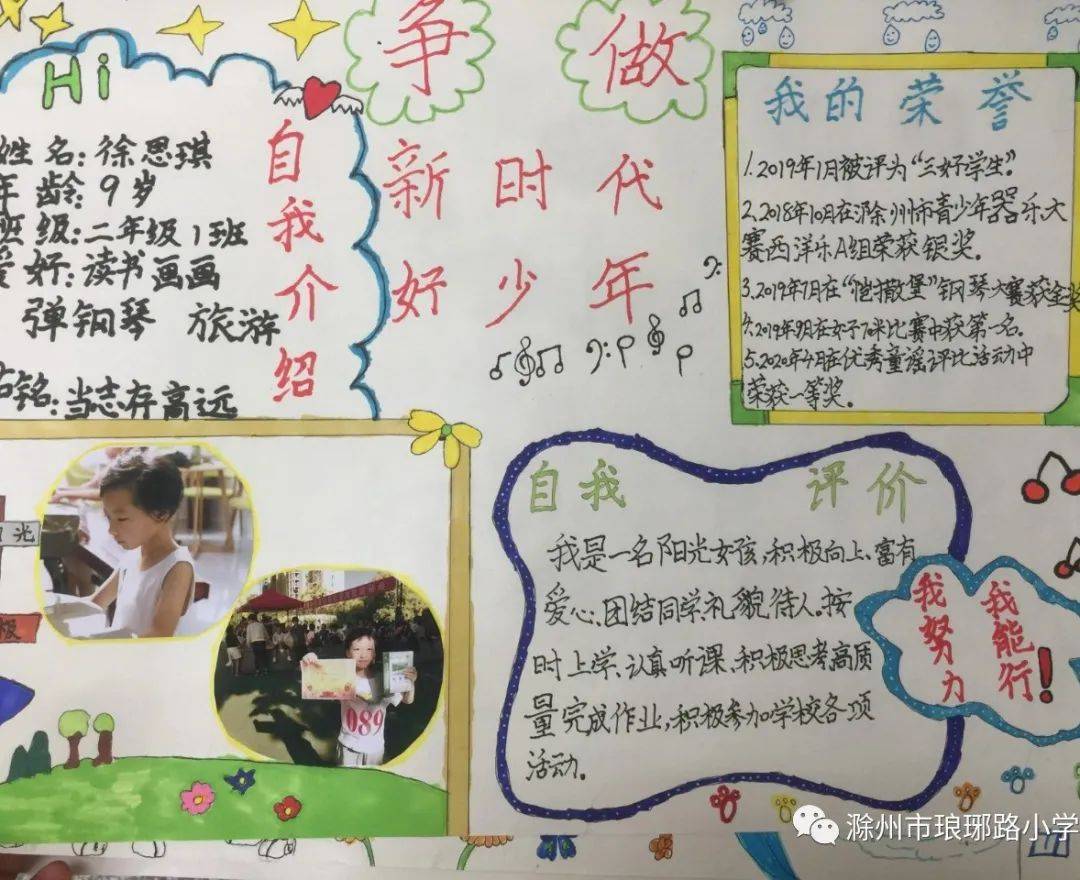 争 做
新时代
好少年
Hi
自我介绍
姓名:徐思琪
年龄:9岁
班级:二年级1班
爱好:读书画画
弹钢琴 旅游
右铭:当志存高远
我的荣誉
1.2019年1月被评为“三好学生”。
2.2018年10月在滁州市青少年器乐大
赛西洋乐A组荣获银奖。
3.2019年7月在“恺撒堡”钢琴大赛获金奖
4.2019年9月在女子70米比赛中获第一名。
5.2020年4月在优秀童谣评比活动中
荣获一等奖。
光
极
089
自我 评价
我是一名阳光女孩,积极向上、富有
爱心、团结同学、礼貌待人、按
时上学、认真听课、积极思考高质
量完成作业,积极参加学校各项
活动。
我努力
我能行!
滁州市琅琊路小学